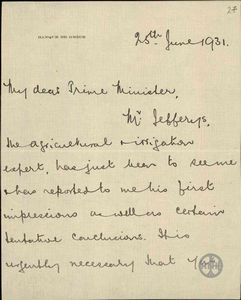 27
BANQUE DE GRÈCE
25th June 1931.
My dear Prime Minister,
Mr Jefferys,
the agricultural & irrigation
expert, has just been to see me
& has reported to me his first
impressions as well as certain
tentative conclusions. It is
urgently necessary that